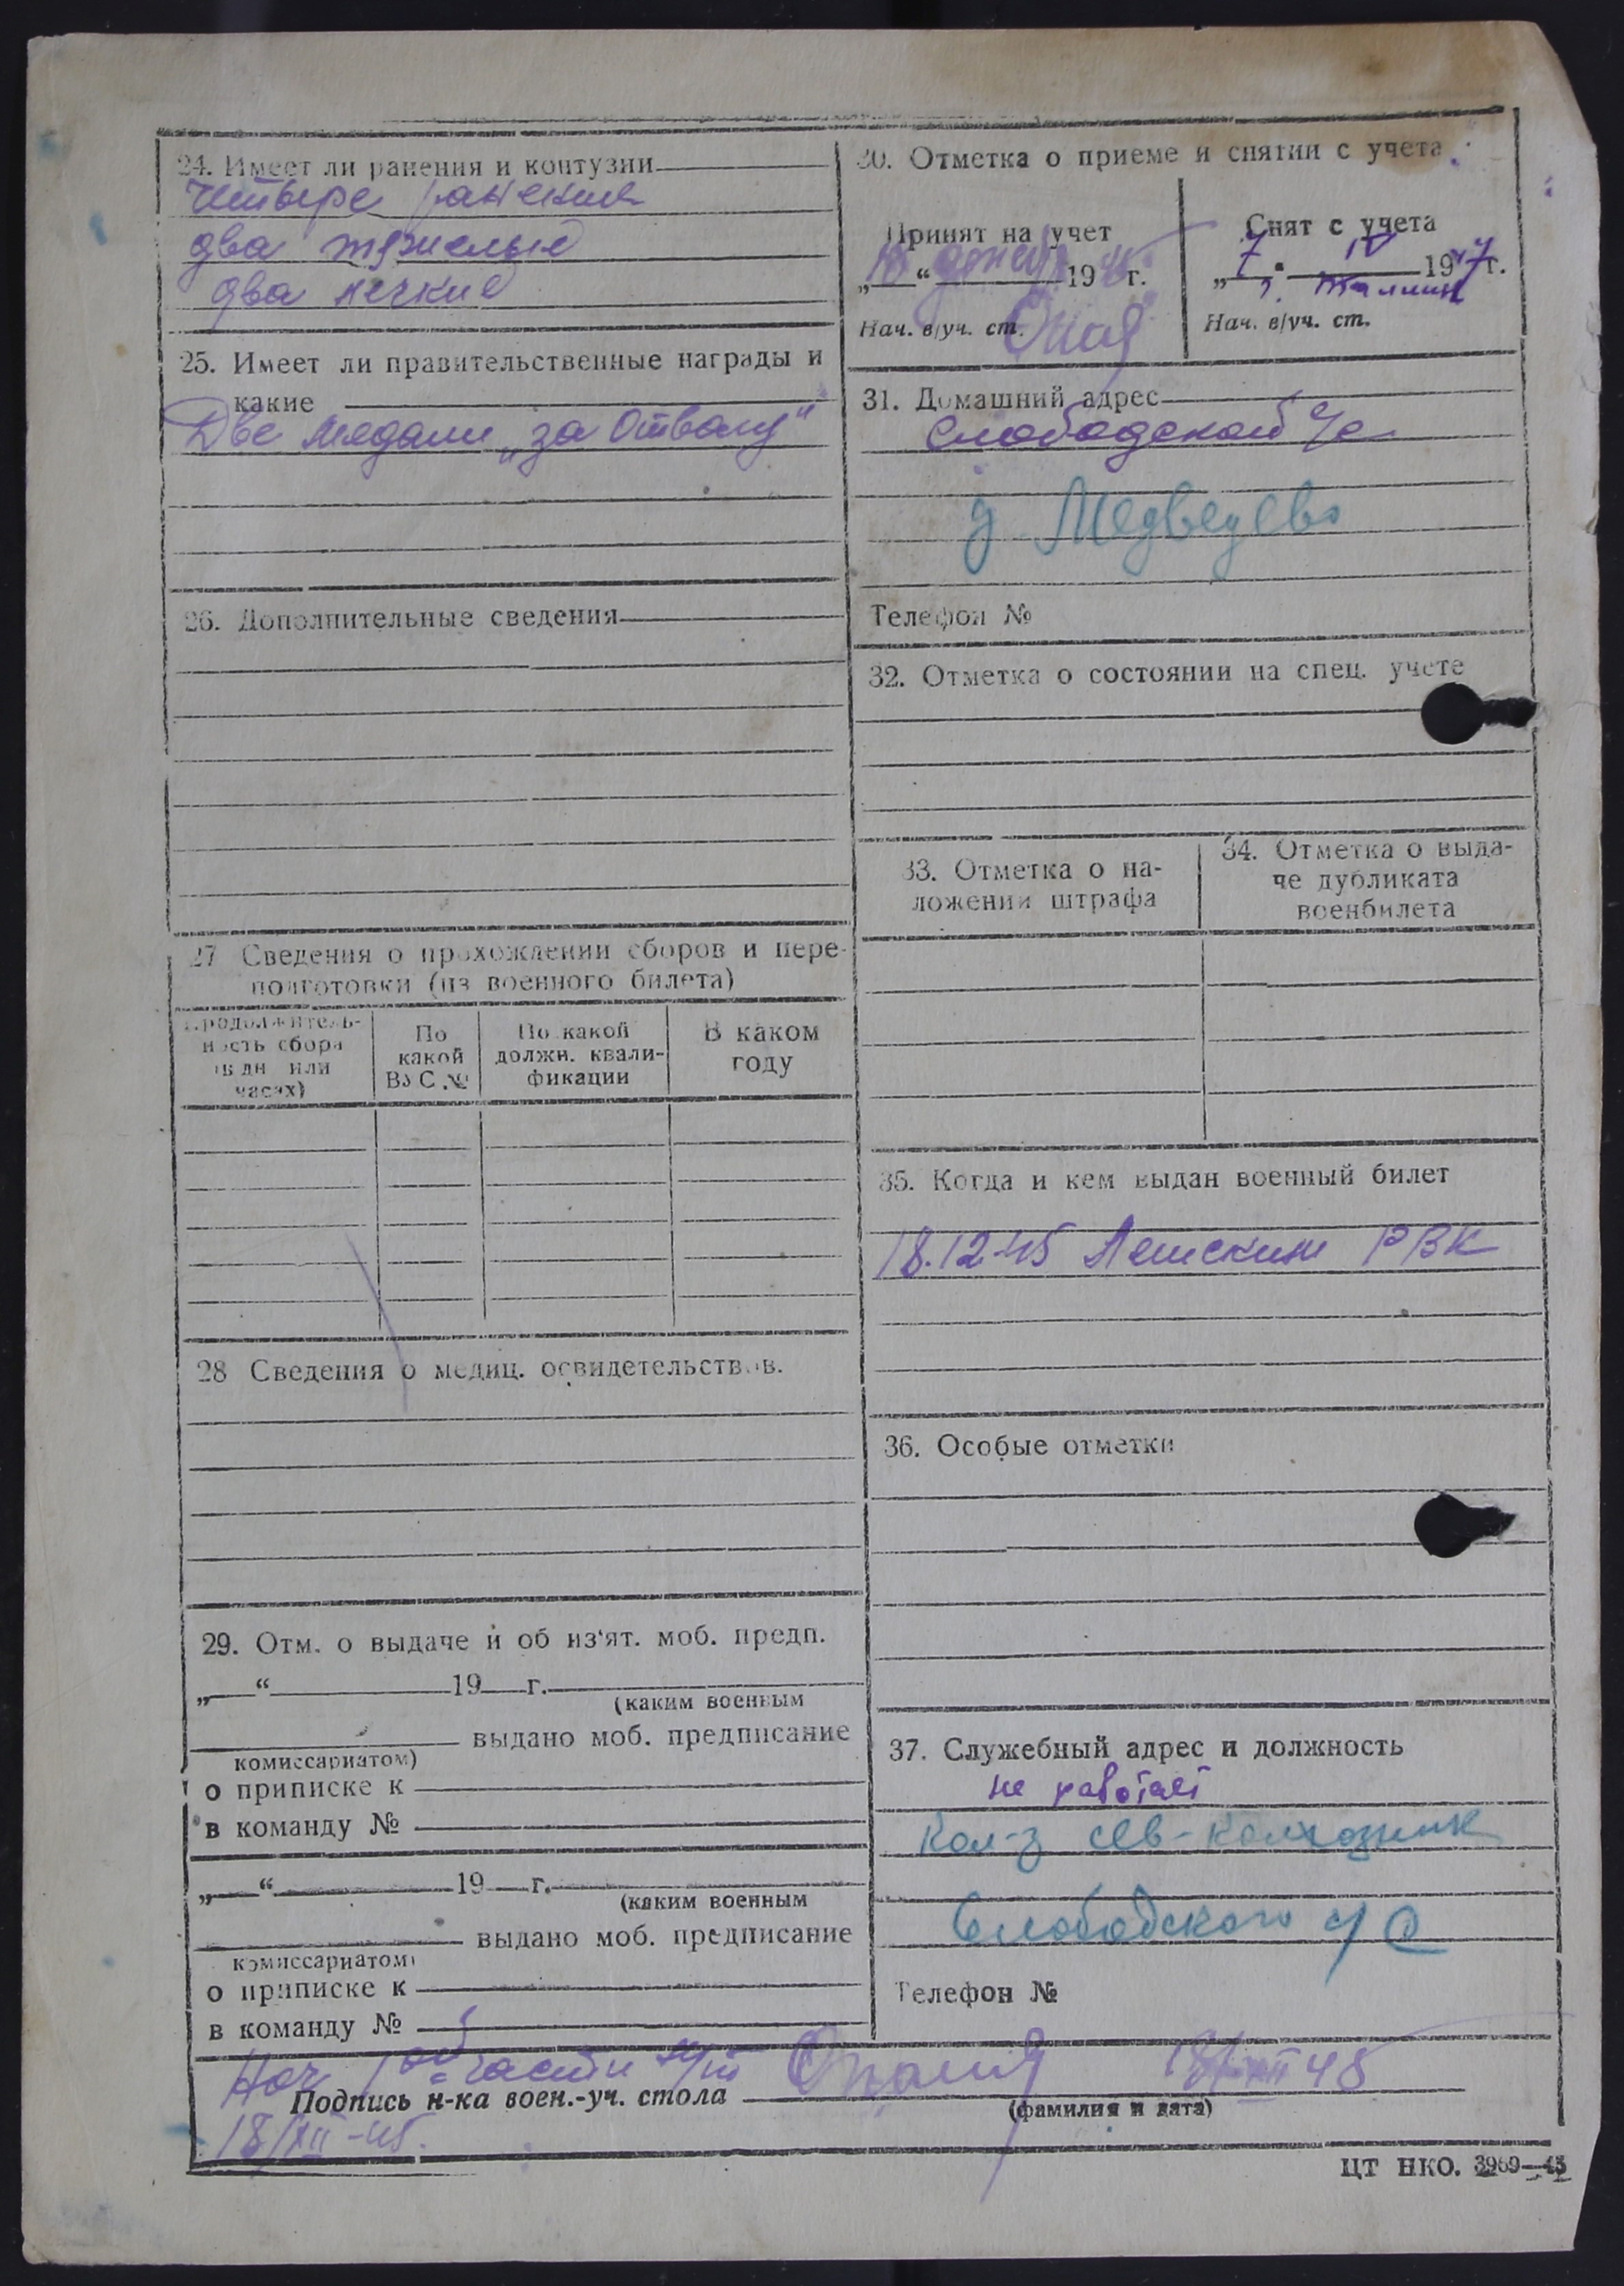 24. Имеет ли ранения и контузии
Четыре ранения
два тяжелые
два легкие
25. Имеет ли правительственные награды и
какие
Две медали „за Отвагу“
26. Дополнительные сведения
27 Сведения о прохождении сборов и пере-
подготовки (из военного билета)
Продолжитель-
ность сбора
(в дн или
часах)
По
какой
ВУС №
По какой
должн. квали-
фикации
В каком
году
28 Сведения о медиц. освидетельствов.
29. Отм. о выдаче и об из'ят. моб. предп.
„ “ 19 г.
(каким военным
выдано моб. предписание
комиссариатом)
о приписке к
в команду №
„ “ 19 г.
(каким военным
выдано моб. предписание
комиссариатом)
о приписке к
в команду №
30. Отметка о приеме и снятии с учета
Принят на учет
18 “ декаб 19 45 г.
Нач. в/уч. ст.
Снят с учета
„ 7 “ IV 1947 г.
г. Таллин
Нач. в/уч. ст.
31. Домашний адрес
Слободской с/с
д. Медведево
Телефон №
32. Отметка о состоянии на спец. учете
33. Отметка о на-
ложении штрафа
34. Отметка о выда-
че дубликата
военбилета
35. Когда и кем выдан военный билет
18.12-45 РВК
36. Особые отметки
37. Служебный адрес и должность
не работает
Кол-з сев-колхозник
Слободского с/с
Телефон №
Нач 1ой части
18/XII 45
Подпись н-ка воен.-уч. стола
(фамилия и дата)
18/XII-45.
ЦТ НКО. 3969—45